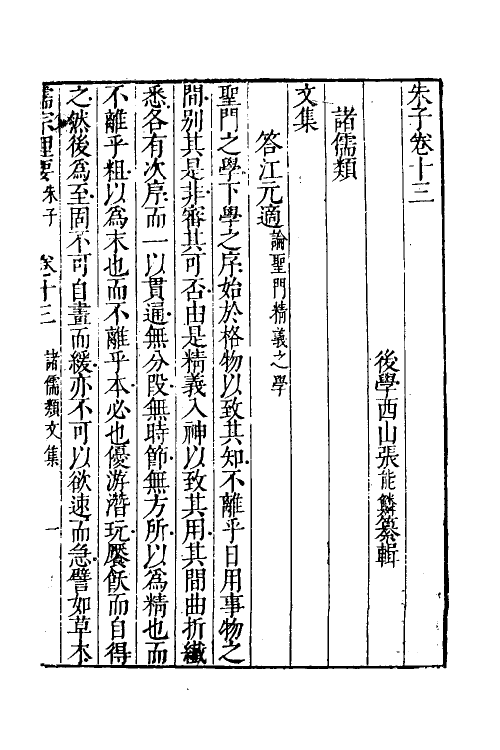 朱子卷十三
後學西山張能鱗纂輯
諸儒類
文集
答江元適論聖門精義之學
聖門之學下學之序始於格物以致其知不離乎日用事物之
間別其是非審其可否由是精義入神以致其用其間曲折纖
悉各有次序而一以貫通無分段無時節無方所以為精也而
不離乎粗以為末也而不離乎本必也優游潛玩饜飫而自得
之然後為至固不可自畫而緩亦不可以欲速而急譬如草木
儒宗理要 朱子 卷十三 諸儒類文集 一